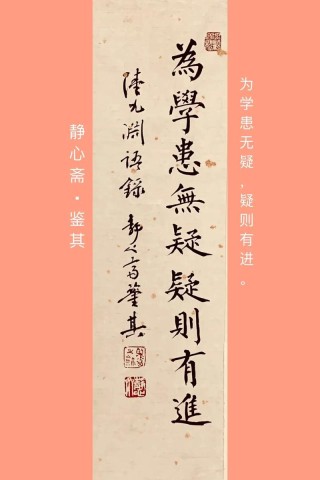 为学患无疑，疑则有进。
為學患無疑疑則有進
陸九淵語錄 静心斋鉴其
静心斋·鉴其